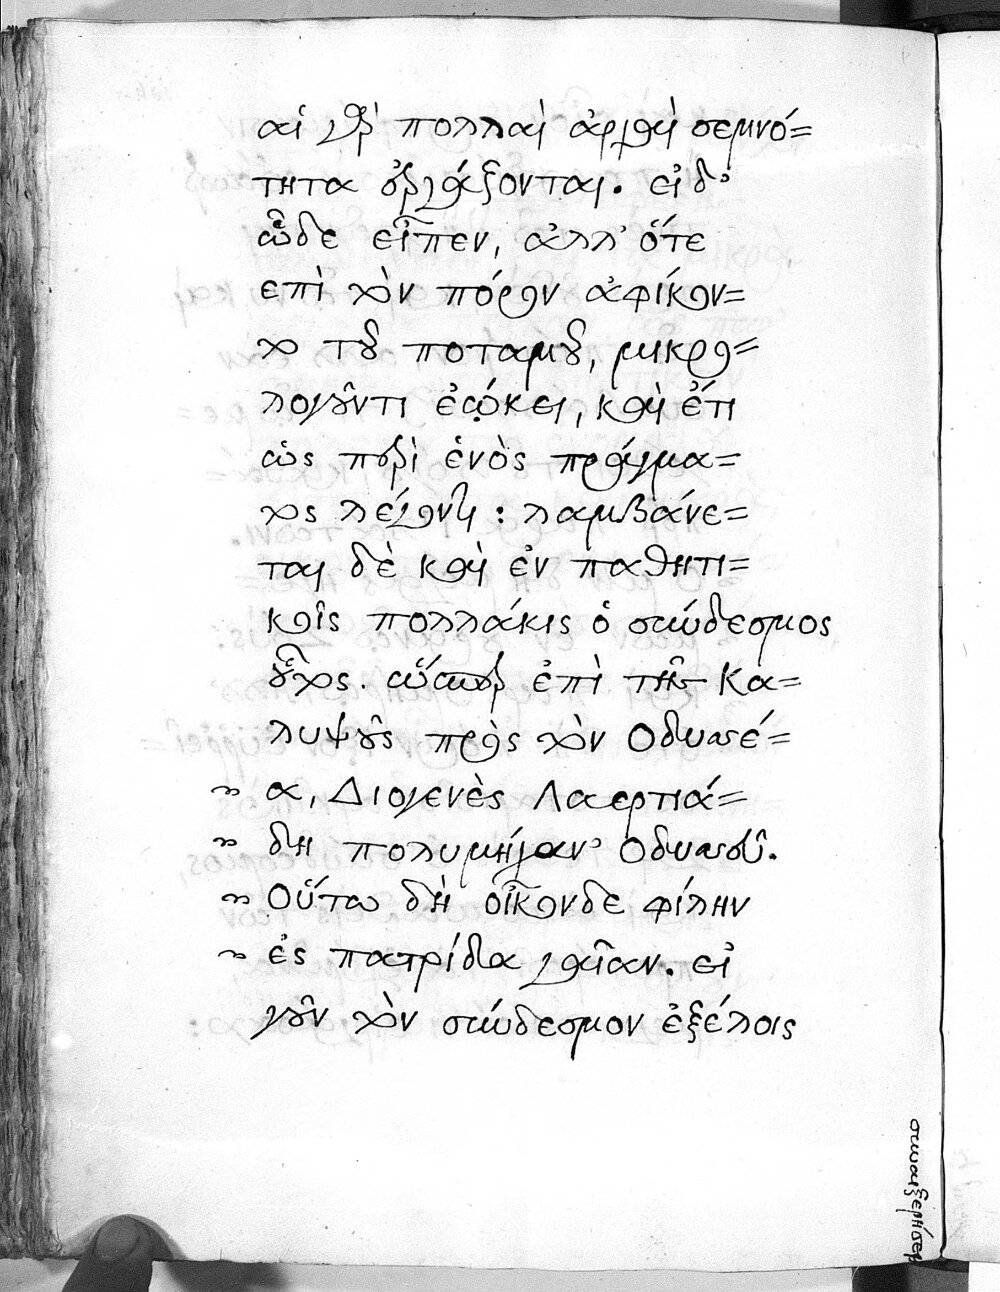 αἱ γὰρ πολλαὶ ἀρχαὶ σεμνό=
τητα παρέξονται. εἰ δ'
ὧδε εἶπεν, ἀλλ' ὅτε
επὶ τὸν πόρον ἀφίκον=
το τοῦ ποταμοῦ, μικρο=
λογοῦντι ἐῴκει, καὶ ἔτι
ὡς περὶ ἑνὸς πράγμα=
τος λέγοντι : λαμβάνε=
ται δὲ καὶ ἐν παθητι=
κοῖς πολλάκις ὁ σύνδεσμος
οὗτος. ὥσπερ ἐπὶ τῆς Κα=
λυψοῦς πρὸς τὸν Οδυσσέ=
α, Διογενὲς Λαερτιά=
δη πολυμήχαν' Οδυσσεῦ.
Οὕτω δὴ οἶκονδε φίλην
ἐς πατρίδα γαῖαν. εἰ
γοῦν τὸν σύνδεσμον ἐξέλοις